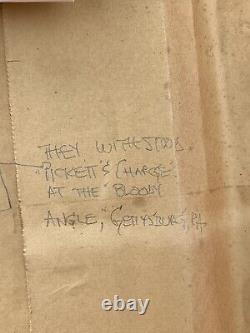 THEY WITHSTOOD
"PICKETT'S CHARGE"
AT THE "BLOODY
ANGLE," GETTYSBURG, PA.
ebay